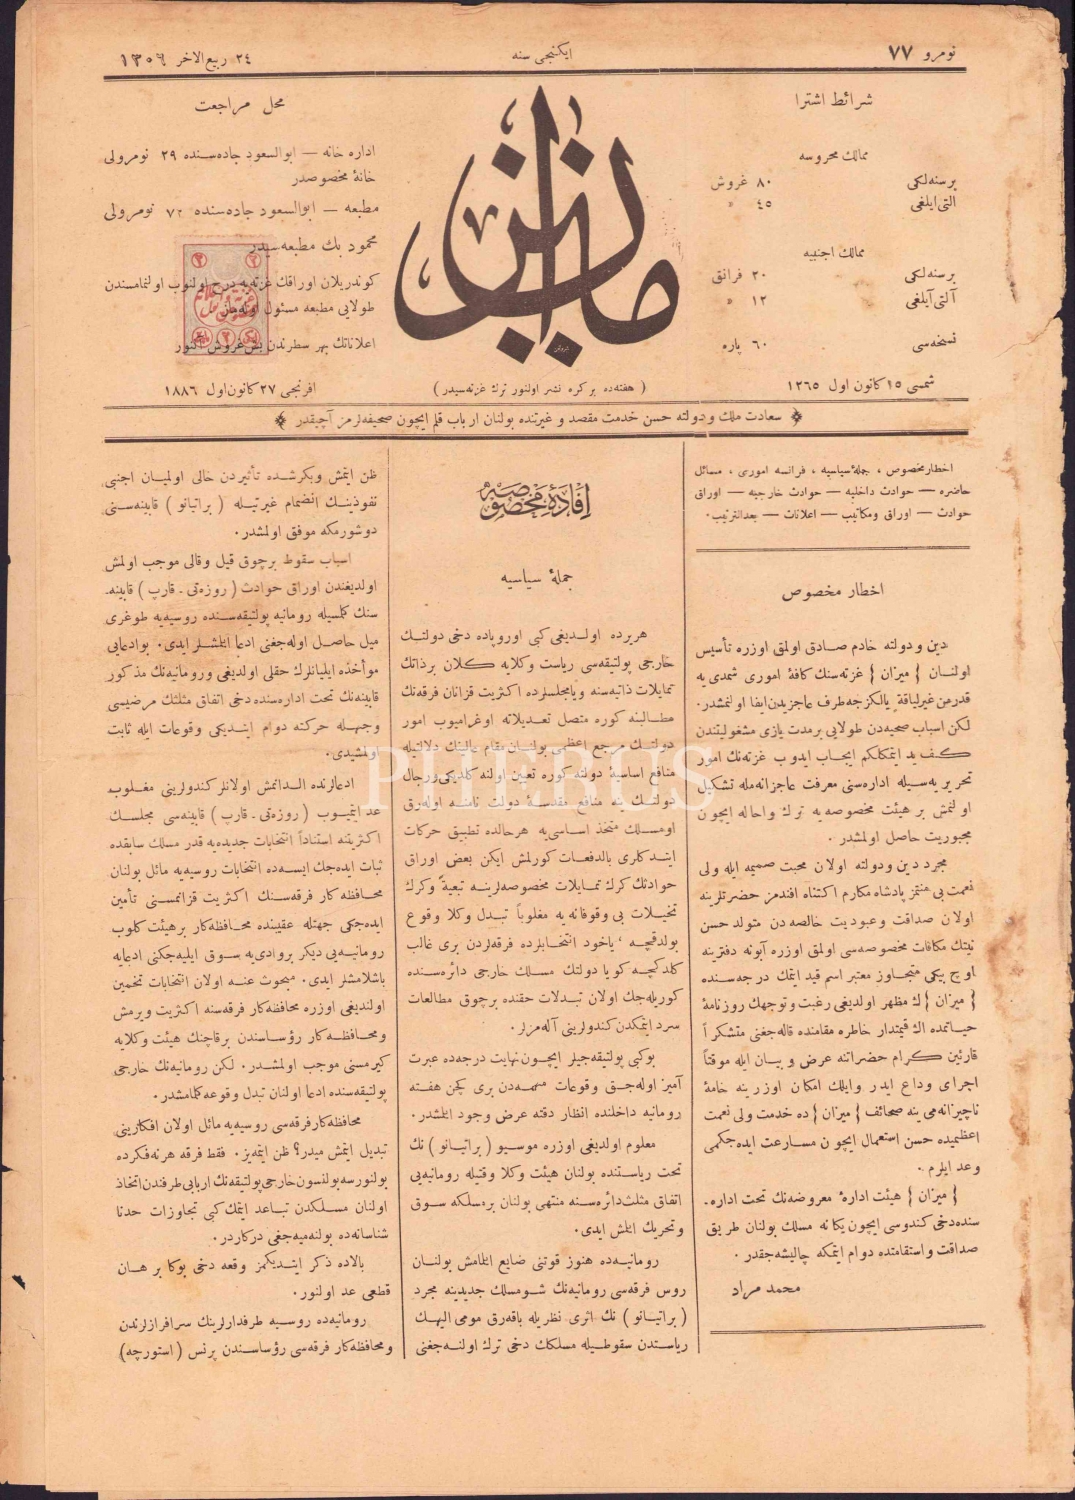 نومرو ٧٧
ایكنجی سنه
٢٤ ربیع الاخر ١٣٠٦
شرائط اشترا
ممالك محروسه
برسنه لكی ٨٠ غروش
التی ایلغی ٤٥ »
ممالك اجنبیه
برسنه لكی ٢٠ فرانق
آلتی آیلغی ١٢ »
نسخه سی ٦٠ پاره
شمسی ١٥ كانون اول ١٢٦٥
میزان
( هفته ده بر كره نشر اولنور ترك غزته سیدر )
محل مراجعت
اداره خانه — ابوالسعود جاده سنده ٢٩ نومرولی
خانهٔ مخصوصدر
مطبعه — ابوالسعود جاده سنده ٧٢ نومرولی
محمود بك مطبعه سیدر
كوندریلان اوراقك غزته یه درج اولنوب اولنمامسندن
طولایی مطبعه مسئول اوله ماز
اعلاناتك بهر سطرندن بش غروش آلنور
افرنجی ٢٧ كانون اول ١٨٨٦
سعادت ملك و دولته حسن خدمت مقصد و غیرتنده بولنان ارباب قلم ایچون صحیفه لرمز آچیقدر
اخطار مخصوص ، جملهٔ سیاسیه ، فرانسه اموری ، مسائل
حاضره — حوادث داخلیه — حوادث خارجیه — اوراق
حوادث — اوراق ومكاتیب — اعلانات —
اخطار مخصوص
دین و دولته خادم صادق اولمق اوزره تأسیس
اولنان { میزان } غزته سنك كافهٔ اموری شمدی یه
قدر من غیر لیاقة یالكزجه طرف عاجزیدن ایفا اولنمشدر.
لكن اسباب صحیه دن طولایی بر مدت یازی مشغولیتندن
كف ید ایتمكلكم ایجاب ایدوب غزته نك امور
تحریریه سیله اداره سنی معرفت عاجزانه مله تشكیل
اولنمش بر هیئت مخصوصه یه ترك واحاله ایچون
مجبوریت حاصل اولمشدر .
مجرد دین و دولته اولان محبت صمیمه ایله ولی
نعمت بی منتمز پادشاه مكارم اكتناه افندمز حضرتلرینه
اولان صداقت وعبودیت خالصه دن متولد حسن
نیتك مكافات مخصوصه سی اولمق اوزره آبونه دفترینه
اوچ بیكی متجاوز معتبر اسم قید ایتمك درجه سنده
{ میزان } ك مظهر اولدیغی رغبت وتوجهك روزنامهٔ
حیاتمده اك قیمتدار خاطره مقامنده قاله جغنی متشكراً
قارئین كرام حضراتنه عرض و بیان ایله موقتاً
اجرای وداع ایدر وایلك امكان اوزرینه خامهٔ
ناچیزانه می ینه صحائف { میزان } ده خدمت ولی نعمت
اعظمیده حسن استعمال ایچون مسارعت ایده جكمی
وعد ایلرم .
{ میزان } هیئت ادارهٔ معروضه نك تحت اداره ـ
سنده دخی كندوسی ایچون یكانه مسلك بولنان طریق
صداقت واستقامتده دوام ایتمكه چالیشه جقدر .
محمد مراد
افادهٔ مخصوصه
جملهٔ سیاسیه
هریرده اولدیغی كبی اوروپاده دخی دولتك
خارجی پولتیقه سی ریاست وكلایه كلان بر ذاتك
تمایلات ذاتیه سنه ویا مجلسلرده اكثریت قزانان فرقه نك
مطالبنه كوره متصل تعدیلاته اوغرامیوب امور
دولتك مرجع اعظمی بولنان مقام عالینك دلالتیله
منافع اساسیهٔ دولته كوره تعیین اولنه كلدیكی ورجال
دولتك ینه منافع مقدسهٔ دولت نامنه اوله رق
اومسلك متخذ اساسی یه هر حالده تطبیق حركات
ایتدكلری بالدفعات كورلمش ایكن بعض اوراق
حوادثك كرك تمایلات مخصوصه لرینه تبعیةً وكرك
تخیلات بی وقوفانه یه مغلوباً تبدل وكلا وقوع
بولدقجه ، یاخود انتخابلرده فرقه لردن بری غالب
كلدكجه كویا دولتك مسلك خارجی دائره سنده
كوریله جك اولان تبدلات حقنده برچوق مطالعات
سرد ایتمكدن كندولرینی آله مزلر.
بوكبی پولتیقه جیلر ایچون نهایت درجه ده عبرت
آمیز اوله جق وقوعات مهمه دن بری كچن هفته
رومانیه داخلنده انظار دقته عرض وجود ایلمشدر.
معلوم اولدیغی اوزره موسیو ( براتیانو ) نك
تحت ریاستنده بولنان هیئت وكلا وقتیله رومانیه یی
اتفاق مثلث دائره سنه منتهی بولنان بر مسلكه سوق
وتحریك ایتلمش ایدی.
رومانیه ده هنوز قوتنی ضایع ایتلمامش بولنان
روس فرقه سی رومانیه نك شو مسلك جدیدینه مجرد
( براتیانو ) نك اثری نظریله باقه رق مومی الیهك
ریاستدن سقوطیله مسلكك دخی ترك اولنه جغنی
ظن ایتمش وبكرشده تأثیردن خالی اولمیان اجنبی
نفوذینك انضمام غیرتیله ( براتیانو ) قابینه سنی
دوشورمكه موفق اولمشدر.
اسباب سقوط برچوق قیل وقالی موجب اولمش
اولدیغندن اوراق حوادث ( روزه تی ـ قارپ ) قابینه ـ
سنك كلمسیله رومانیه پولتیقه سنده روسیه یه طوغری
میل حاصل اوله جغنی ادعا ایتلمشلر ایدی. بو ادعایی
مؤاخذه ایلیانلرك حقلی اولدیغی ورومانیه نك مذكور
قابینه نك تحت اداره سنده دخی اتفاق مثلثك مرضیسی
وجهله حركته دوام ایتدیكی وقوعات ایله ثابت
اولمشیدی.
ادعالرنده الدانمش اولانلر كندولرینی مغلوب
عد ایتمیوب ( روزه تی ـ قارپ ) قابینه سی مجلسك
اكثریتنه استناداً انتخابات جدیده یه قدر مسلك سابقده
ثبات ایده جك ایسه ده انتخابات روسیه یه مائل بولنان
محافظه كار فرقه سنك اكثریت قزانمسنی تأمین
ایده جكی جهتله عقبنده محافظه كار بر هیئت كلوب
رومانیه یی دیكر بر وادی یه سوق ایلیه جكنی ادعایه
باشلامشلر ایدی. مبحوث عنه اولان انتخابات تخمین
اولندیغی اوزره محافظه كار فرقه سنه اكثریت ویرمش
ومحافظه كار رؤساسندن برقاچنك هیئت وكلایه
كیرمسنی موجب اولمشدر. لكن رومانیه نك خارجی
پولتیقه سنده ادعا اولنان تبدل وقوعه كلمامشدر.
محافظه كار فرقه سی روسیه یه مائل اولان افكارینی
تبدیل ایتمش میدر؟ ظن ایتمه یز. فقط فرقه هر نه فكرده
بولنورسه بولنسون خارجی پولتیقه نك اربابی طرفندن اتخاذ
اولنان مسلكدن تباعد ایتمك كبی تجاوزات حدنا
شناسانه ده بولنه میه جغی دركاردر.
بالاده ذكر ایتدیكمز وقعه دخی بوكا برهان
قطعی عد اولنور.
رومانیه ده روسیه طرفدارلرینك سرافرازلرندن
ومحافظه كار فرقه سی رؤساسندن پرنس ( استورچه )
PHEBUS